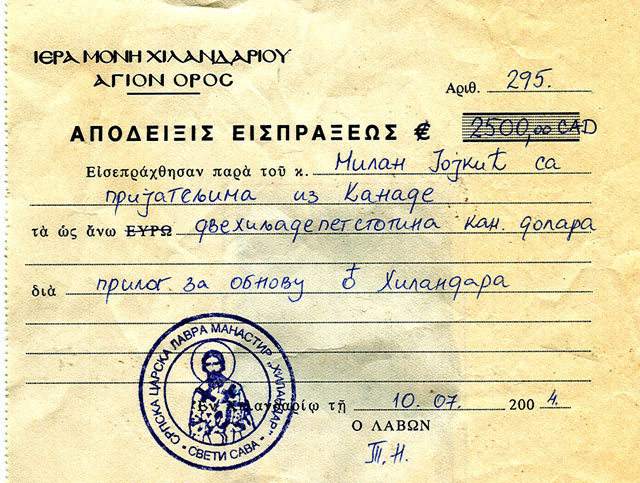 ΙΕΡΑ ΜΟΝΗ ΧΙΛΑΝΔΑΡΙΟΥ
ΑΓΙΟΝ ΟΡΟΣ
Αριθ. 295.
ΑΠΟΔΕΙΞΙΣ ΕΙΣΠΡΑΞΕΩΣ € 2500,00 CAD
Εἰσεπράχθησαν παρὰ τοῦ κ. Милан Јојкић са
пријатељима из Канаде
τὰ ὡς ἄνω ΕΥΡΩ двехиљадепетстотина кан. долара
διὰ прилог за обнову Хиландара
СРПСКА ЦАРСКА ЛАВРА МАНАСТИР „ХИЛАНДАР“
• СВЕТИ САВА •
Ἐν Χιλανδαρίῳ τῇ 10.07. 2004.
Ο ΛΑΒΩΝ